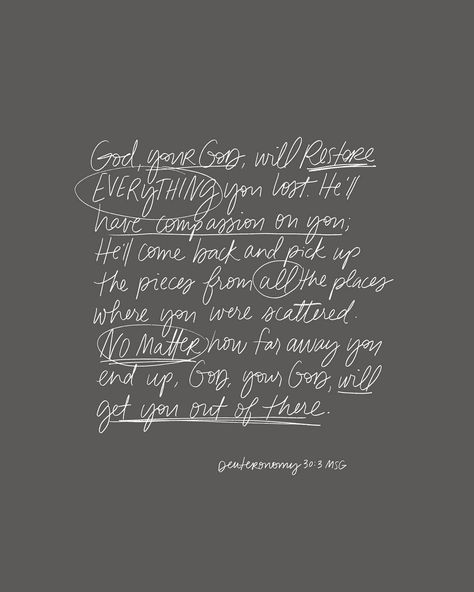 God, your God, will Restore
EVERyTHING you lost. He'll
have compassion on you;
He'll come back and pick up
the pieces from all the places
where you were scattered.
No Matter how far away you
end up, God, your God, will
get you out of there.
Deuteronomy 30:3 MSG